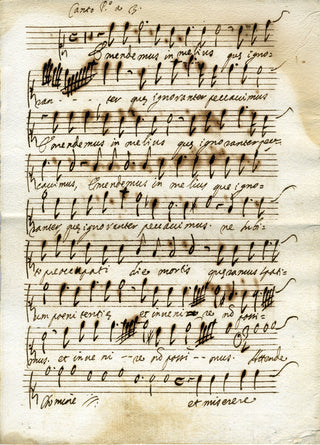 Canto P.º a 3.
Emendemus in melius que igno=
ran ter que ignoranter peccavimus
Emendemus in melius que ignoranter pec=
cavimus, Emendemus in melius que igno=
ranter que ignoranter peccavimus. ne subi=
to preocupati die mortis queramus spati=
um poenitentie et inveni -- re nō possi=
mus. et inve ni -- re nō possi -- mus. Attende
Domine //. et miserere